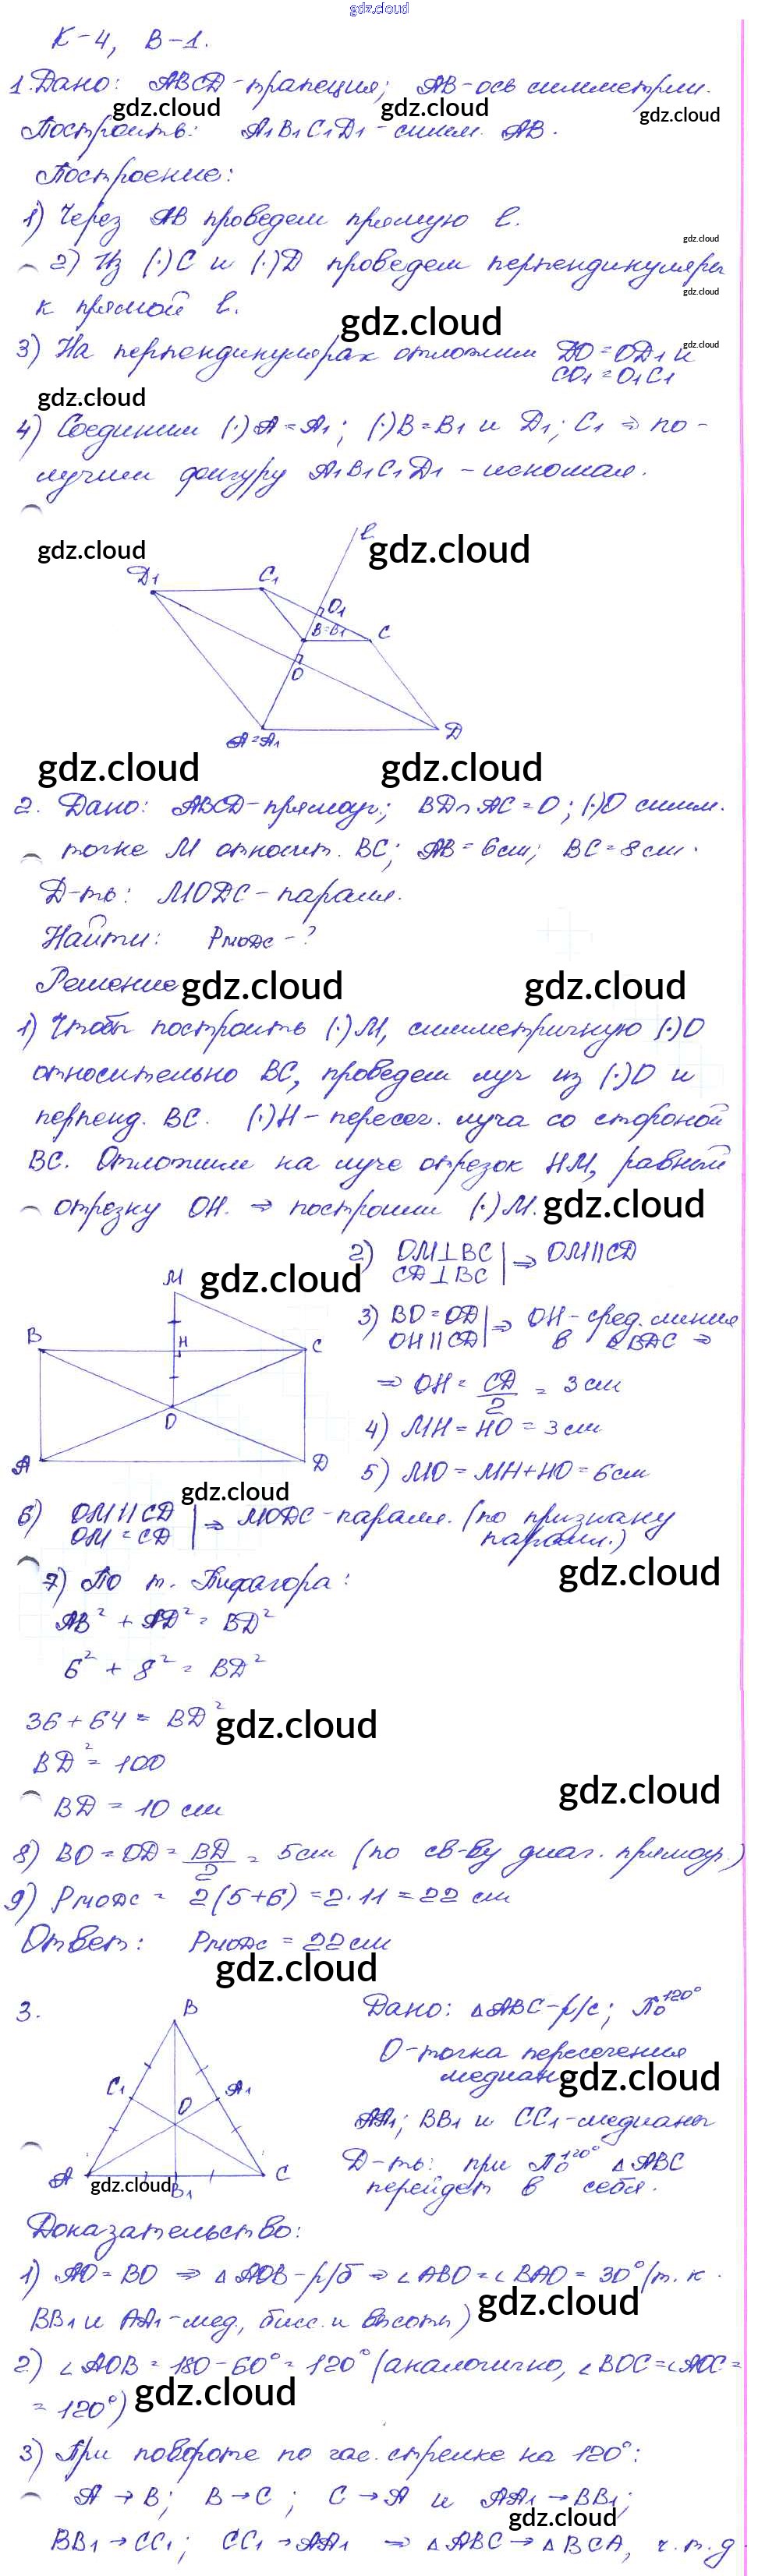 gdz.cloud
К-4, В-1.
1. Дано: ABCD-трапеция; AB-ось симметрии.
gdz.cloud gdz.cloud gdz.cloud
Построить: A₁B₁C₁D₁-симм. AB.
Построение:
1) Через AB проведем прямую l.
gdz.cloud
2) Из (·)C и (·)D проведем перпендикуляры
gdz.cloud
к прямой l.
gdz.cloud
3) На перпендикулярах отложим DO=OD₁ и
gdz.cloud
CO₁=O₁C₁
gdz.cloud
4) Соединим (·)A=A₁; (·)B=B₁ и D₁; C₁ ⇒ по-
лучим фигуру A₁B₁C₁D₁ - искомая.
l
gdz.cloud gdz.cloud
D₁ C₁
O₁
B=B₁ C
O
A=A₁ D
gdz.cloud gdz.cloud
2. Дано: ABCD-прямоуг.; BD∩AC=O; (·)O симм.
точке M относит. BC; AB=6см; BC=8см.
Д-ть: MODC-паралл.
Найти: PMODC-?
Решение
gdz.cloud gdz.cloud
1) Чтобы построить (·)M, симметричную (·)O
относительно BC, проведем луч из (·)O и
перпенд. BC. (·)H-пересеч. луча со стороной
BC. Отложим на луче отрезок HM, равный
отрезку OH. ⇒ построим (·)M.
gdz.cloud
2) OM⊥BC
CD⊥BC | ⇒ OM||CD
M gdz.cloud
B H C
O
A D
3) BO=OD
OH||CD | ⇒ OH-сред. линия
в ΔBDC ⇒
⇒ OH = CD/2 = 3см
4) MH=HO=3см
5) MO=MH+HO=6см
gdz.cloud
6) OM||CD
OM=CD | ⇒ MODC-паралл. (по признаку
паралл.)
gdz.cloud
7) По т. Пифагора:
AB²+AD²=BD²
6²+8²=BD²
36+64=BD²
gdz.cloud
BD²=100
gdz.cloud
BD=10 см
8) BO=OD=BD/2=5см (по св-ву диаг. прямоуг.)
9) PMODC = 2(5+6)=2·11=22 см
Ответ: PMODC=22см
gdz.cloud
3.
B
C₁ A₁
O
A B₁ C
gdz.cloud
Дано: ΔABC-р/с; По¹²⁰°
O-точка пересечения
медиан
gdz.cloud
AA₁; BB₁ и CC₁-медианы
Д-ть: при По¹²⁰° ΔABC
перейдет в себя.
Доказательство:
1) AO=BO ⇒ ΔAOB-р/б ⇒ ∠ABO=∠BAO=30° (т.к.
gdz.cloud
BB₁ и AA₁-мед., бисс. и высоты)
2) ∠AOB=180-60°=120° (аналогично, ∠BOC=∠AOC=
=120°)
gdz.cloud
3) При повороте по час. стрелке на 120°:
A→B; B→C; C→A и AA₁→BB₁;
gdz.cloud
BB₁→CC₁; CC₁→AA₁ ⇒ ΔABC→ΔBCA, ч.т.д.